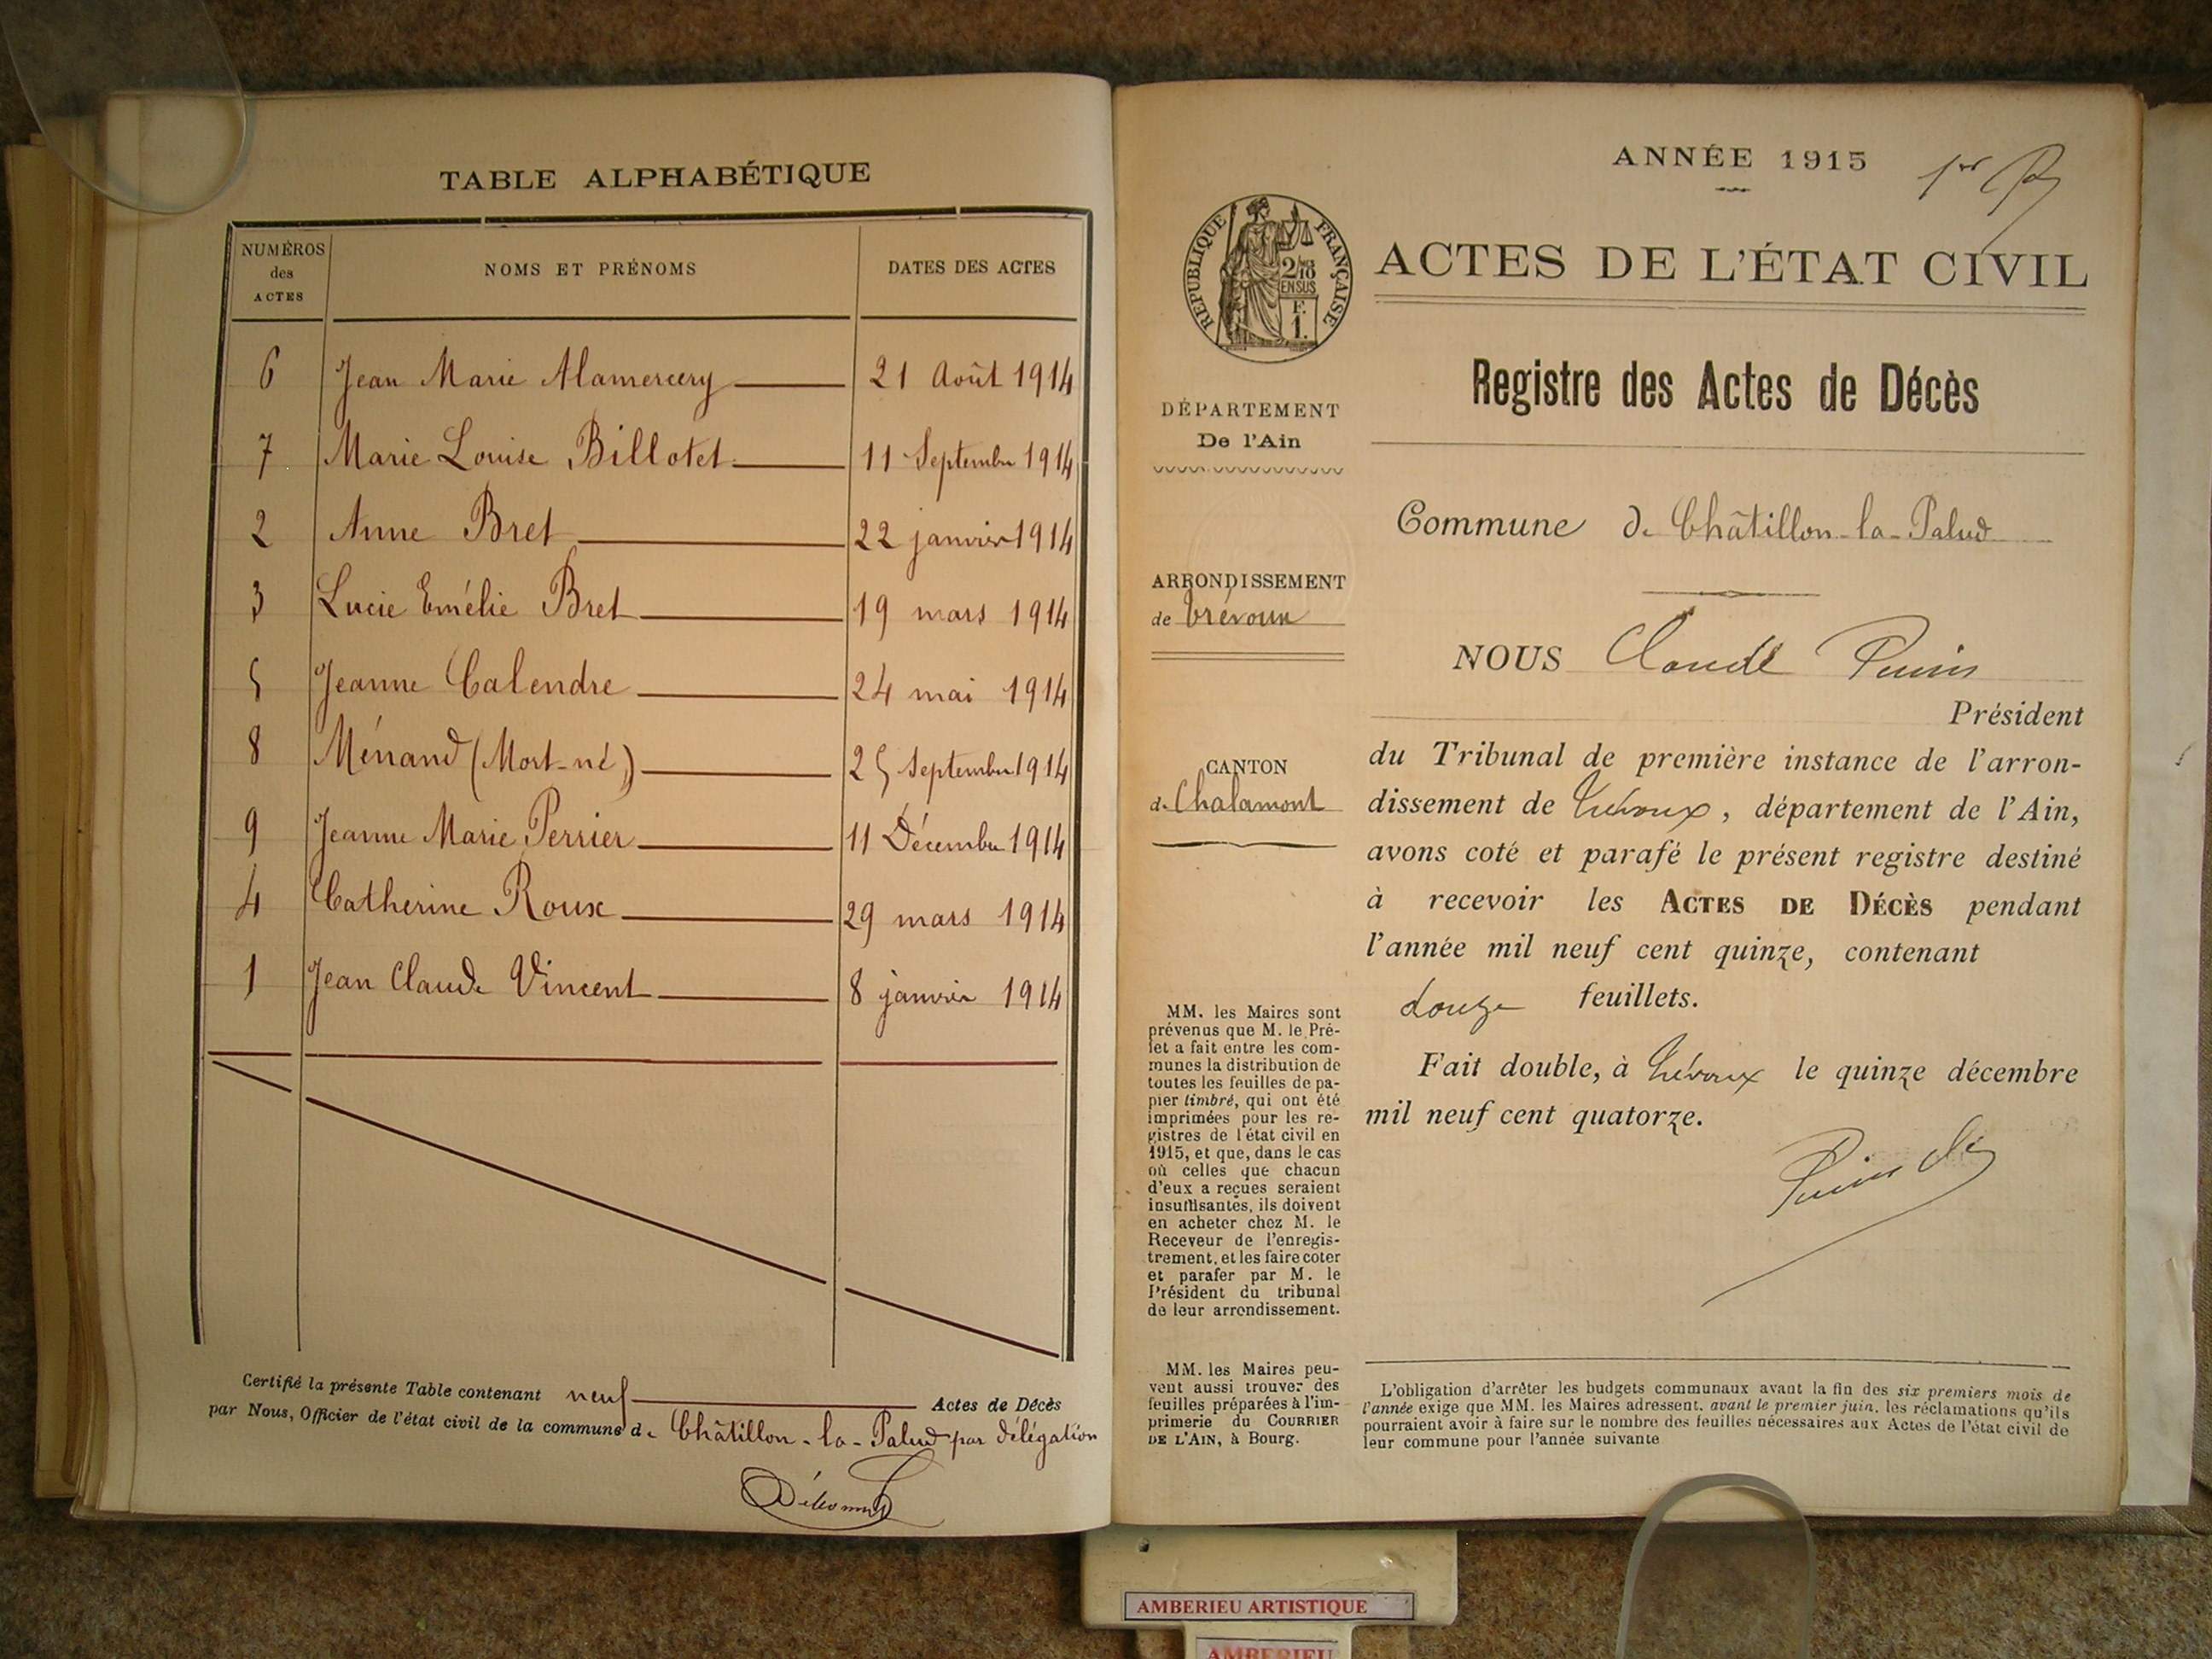 TABLE ALPHABÉTIQUE
NUMÉROS des ACTES NOMS ET PRÉNOMS DATES DES ACTES
6 Jean Marie Alamercery 21 Août 1914
7 Marie Louise Billotet 11 Septembre 1914
2 Anne Bret 22 janvier 1914
3 Lucie Emélie Bret 19 mars 1914
5 Jeanne Calendre 24 mai 1914
8 Ménand (Mort-né) 25 Septembre 1914
9 Jeanne Marie Perrier 11 Décembre 1914
4 Catherine Roux 29 mars 1914
1 Jean Claude Vincent 8 janvier 1914
Certifié la présente Table contenant neuf Actes de Décès
par Nous, Officier de l'état civil de la commune de Châtillon-la-Palud par délégation
ANNÉE 1915
1er
RÉPUBLIQUE FRANÇAISE
2/10
EN SUS
F.
1.
ACTES DE L'ÉTAT CIVIL
Registre des Actes de Décès
DÉPARTEMENT
De l'Ain
Commune de Châtillon-la-Palud
ARRONDISSEMENT
de Trévoux
CANTON
de Chalamont
NOUS Claude
Président
du Tribunal de première instance de l'arron-
dissement de Trévoux, département de l'Ain,
avons coté et parafé le présent registre destiné
à recevoir les ACTES DE DÉCÈS pendant
l'année mil neuf cent quinze, contenant
douze feuillets.
Fait double, à Trévoux le quinze décembre
mil neuf cent quatorze.
MM. les Maires sont
prévenus que M. le Pré-
fet a fait entre les com-
munes la distribution de
toutes les feuilles de pa-
pier timbré, qui ont été
imprimées pour les re-
gistres de l'état civil en
1915, et que, dans le cas
où celles que chacun
d'eux a reçues seraient
insuffisantes, ils doivent
en acheter chez M. le
Receveur de l'enregis-
trement, et les faire coter
et parafer par M. le
Président du tribunal
de leur arrondissement.
MM. les Maires peu-
vent aussi trouver des
feuilles préparées à l'im-
primerie du COURRIER
DE L'AIN, à Bourg.
L'obligation d'arrêter les budgets communaux avant la fin des six premiers mois de
l'année exige que MM. les Maires adressent, avant le premier juin, les réclamations qu'ils
pourraient avoir à faire sur le nombre des feuilles nécessaires aux Actes de l'état civil de
leur commune pour l'année suivante
AMBERIEU ARTISTIQUE
AMBERIEU